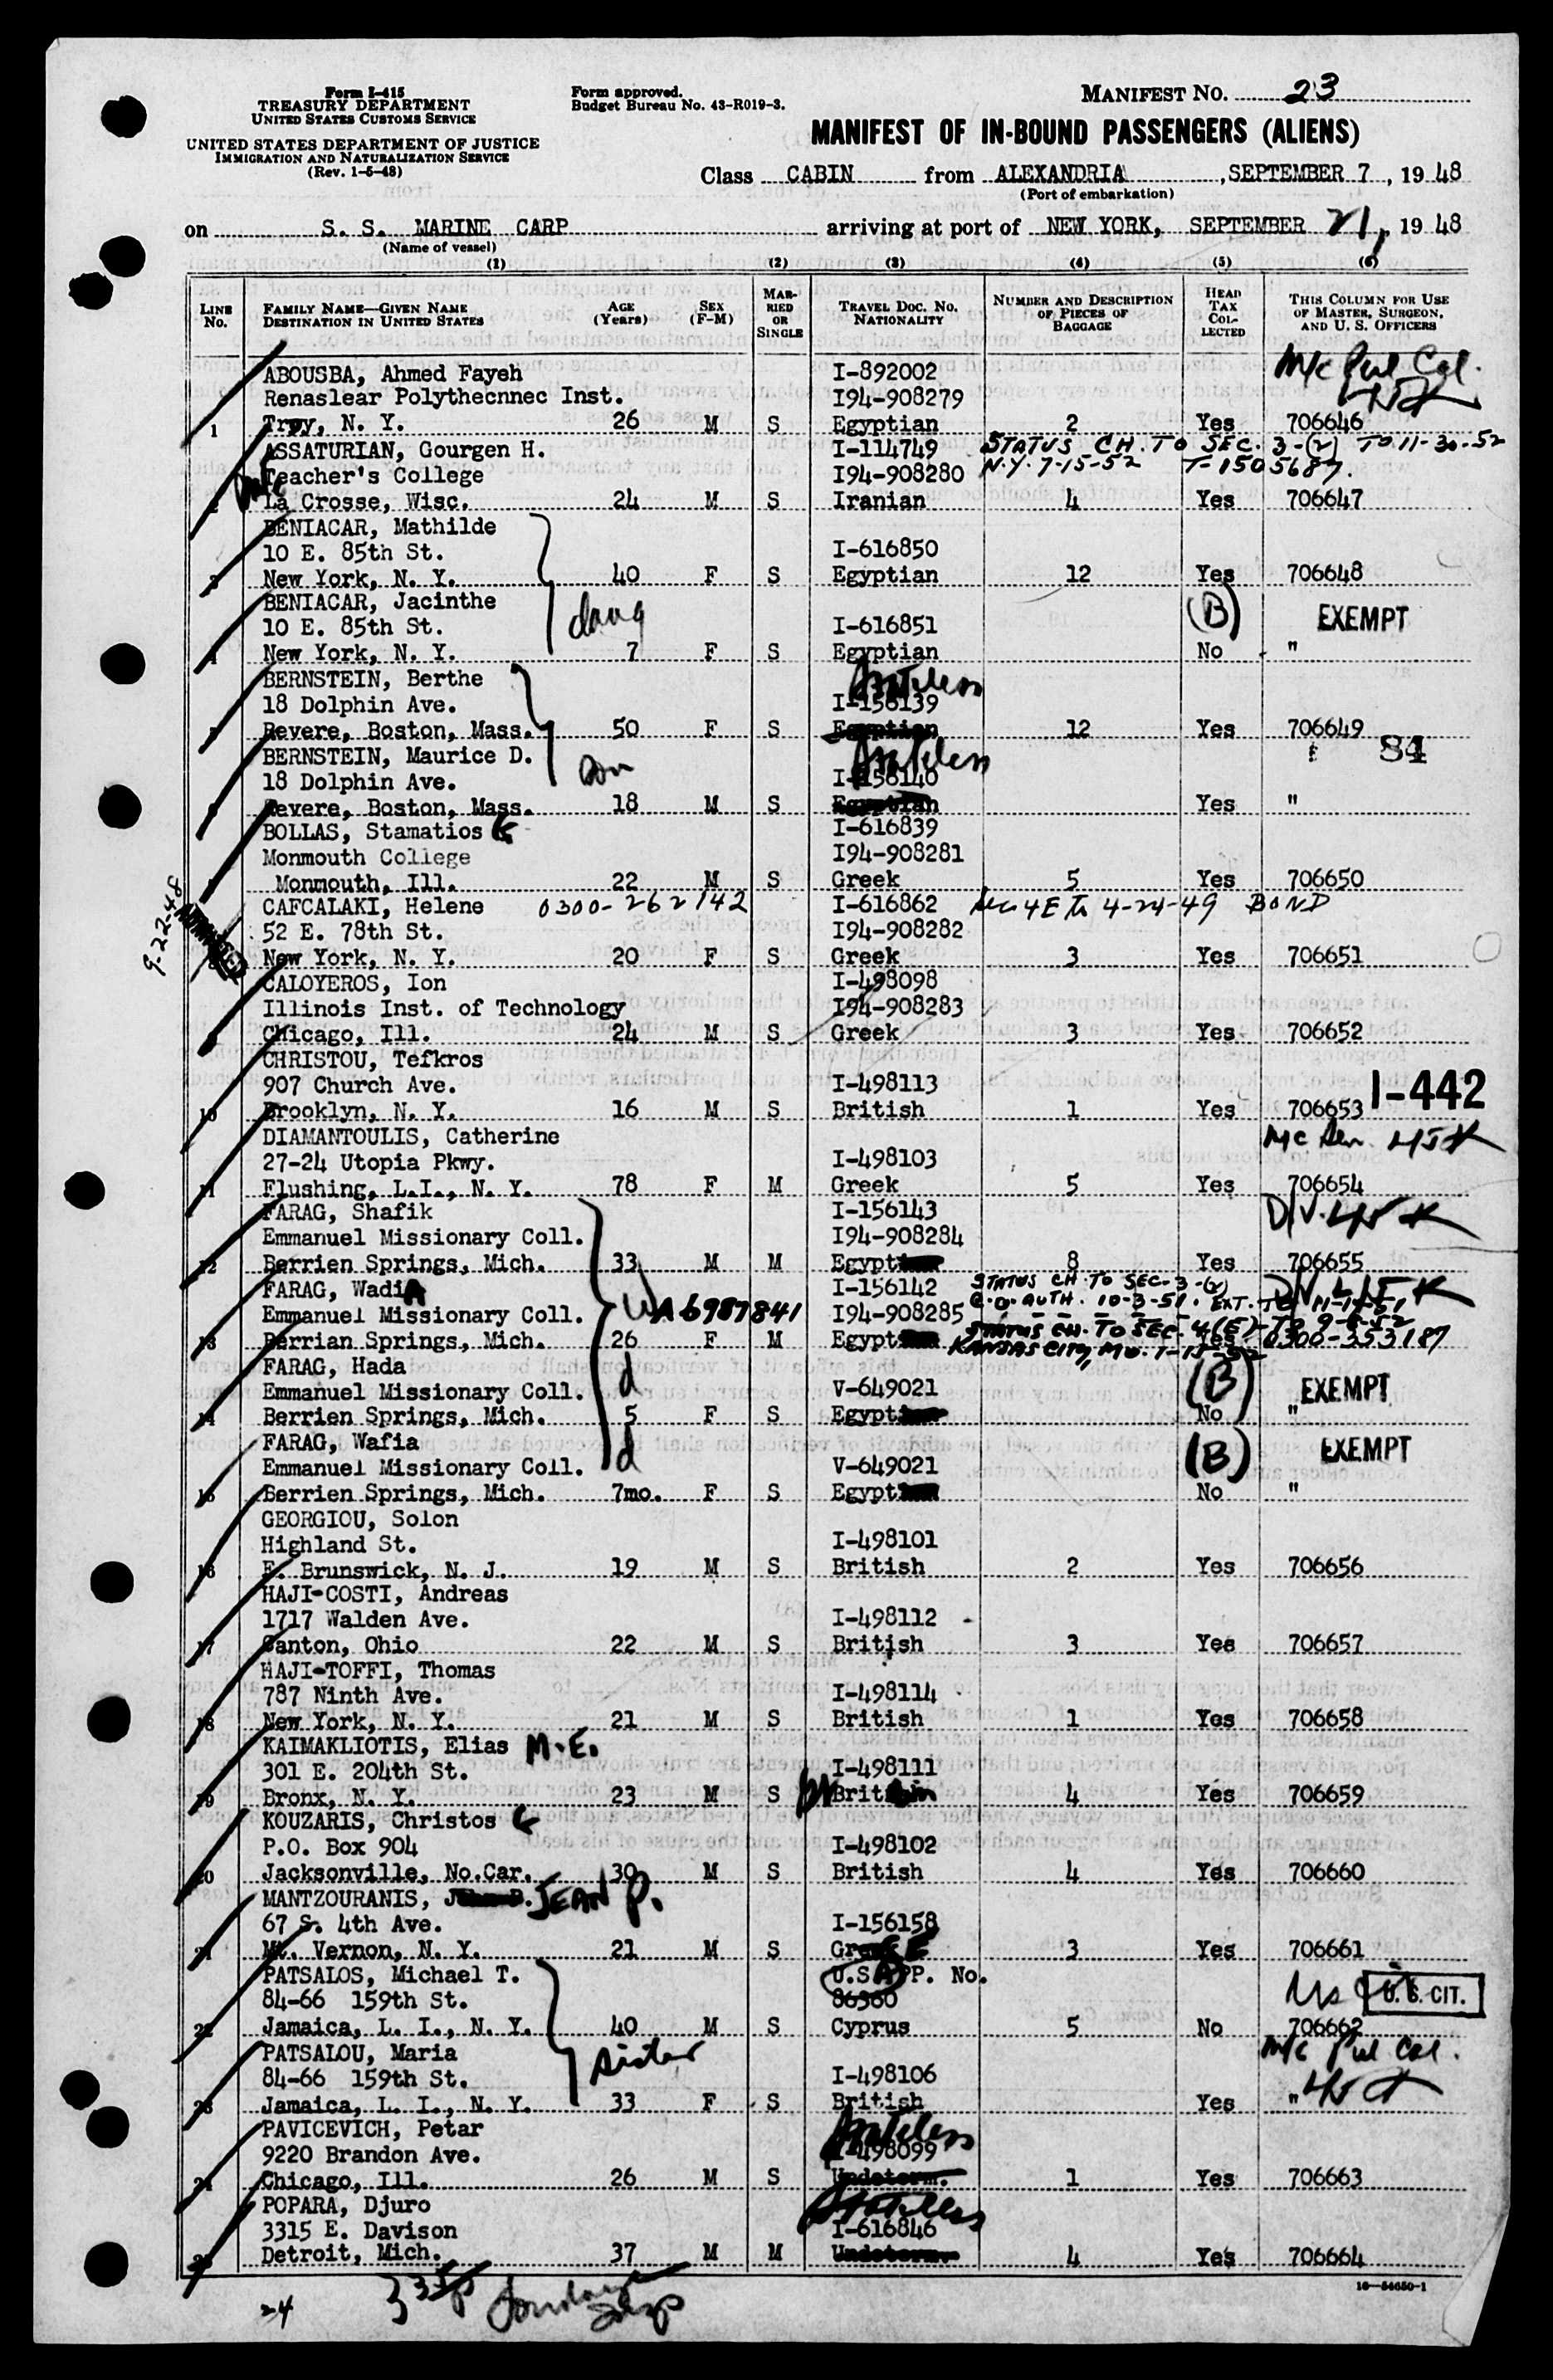 Form I-415
TREASURY DEPARTMENT
UNITED STATES CUSTOMS SERVICE
UNITED STATES DEPARTMENT OF JUSTICE
IMMIGRATION AND NATURALIZATION SERVICE
(Rev. 1-5-48)
Form approved.
Budget Bureau No. 43-R019-3.
MANIFEST NO. 23
MANIFEST OF IN-BOUND PASSENGERS (ALIENS)
Class CABIN from ALEXANDRIA, SEPTEMBER 7, 1948
(Port of embarkation)
on S. S. MARINE CARP arriving at port of NEW YORK, SEPTEMBER 21, 1948
(Name of vessel)
(1) (2) (3) (4) (5) (6)
LINE No.
FAMILY NAME—GIVEN NAME
DESTINATION IN UNITED STATES
AGE (Years)
SEX (F-M)
MARRIED OR SINGLE
TRAVEL DOC. NO.
NATIONALITY
NUMBER AND DESCRIPTION OF PIECES OF BAGGAGE
HEAD TAX COLLECTED
THIS COLUMN FOR USE OF MASTER, SURGEON, AND U. S. OFFICERS
ABOUSBA, Ahmed Fayeh I-892002
Renaslear Polythecnnec Inst. I94-908279
1 Troy, N. Y. 26 M S Egyptian 2 Yes 706646
ASSATURIAN, Gourgen H. I-114749 STATUS CH. TO SEC. 3-(2) TO 11-30-52
Teacher's College I94-908280 N.Y. 7-15-52 T-1505687.
2 La Crosse, Wisc. 24 M S Iranian 4 Yes 706647
BENIACAR, Mathilde
10 E. 85th St. I-616850
3 New York, N. Y. 40 F S Egyptian 12 Yes 706648
BENIACAR, Jacinthe daug (B) EXEMPT
10 E. 85th St. I-616851
4 New York, N. Y. 7 F S Egyptian No "
BERNSTEIN, Berthe Stateless
18 Dolphin Ave. I-156139
5 Revere, Boston, Mass. 50 F S Egyptian 12 Yes 706649
84
BERNSTEIN, Maurice D. son Stateless
18 Dolphin Ave. I-156140
6 Revere, Boston, Mass. 18 M S Egyptian Yes "
BOLLAS, Stamatios G I-616839
Monmouth College I94-908281
Monmouth, Ill. 22 M S Greek 5 Yes 706650
9-22-48
CAFCALAKI, Helene 0300-262142 I-616862 Sec 4E to 4-24-49 BOND
52 E. 78th St. I94-908282
8 New York, N. Y. 20 F S Greek 3 Yes 706651
CALOYEROS, Ion I-498098
Illinois Inst. of Technology I94-908283
9 Chicago, Ill. 24 M S Greek 3 Yes 706652
CHRISTOU, Tefkros
907 Church Ave. I-498113
10 Brooklyn, N. Y. 16 M S British 1 Yes 706653
I-442
DIAMANTOULIS, Catherine
27-24 Utopia Pkwy. I-498103
11 Flushing, L.I., N. Y. 78 F M Greek 5 Yes 706654
FARAG, Shafik I-156143
Emmanuel Missionary Coll. I94-908284
12 Berrien Springs, Mich. 33 M M Egypt 8 Yes 706655
FARAG, Wadia I-156142 STATUS CH. TO SEC-3-(2)
C.O. AUTH. 10-3-51. EXT. TO
Emmanuel Missionary Coll. W A6987841 I94-908285
STATUS CH. TO SEC. 4(E)-TO 9-8-52
13 Berrian Springs, Mich. 26 F M Egypt Yes 0300-353187
KANSAS CITY, MO. 1-15-52
FARAG, Hada d (B) EXEMPT
Emmanuel Missionary Coll. V-649021
14 Berrien Springs, Mich. 5 F S Egypt No "
FARAG, Wafia d (B) EXEMPT
Emmanuel Missionary Coll. V-649021
15 Berrien Springs, Mich. 7mo. F S Egypt No "
GEORGIOU, Solon
Highland St. I-498101
16 E. Brunswick, N. J. 19 M S British 2 Yes 706656
HAJI-COSTI, Andreas
1717 Walden Ave. I-498112
17 Canton, Ohio 22 M S British 3 Yes 706657
HAJI-TOFFI, Thomas
787 Ninth Ave. I-498114
18 New York, N. Y. 21 M S British 1 Yes 706658
KAIMAKLIOTIS, Elias M.E.
301 E. 204th St. I-498111
19 Bronx, N. Y. 23 M S Britain 4 Yes 706659
KOUZARIS, Christos G
P.O. Box 904 I-498102
20 Jacksonville, No.Car. 30 M S British 4 Yes 706660
MANTZOURANIS, JEAN P.
67 S. 4th Ave. I-156158
21 Mt. Vernon, N. Y. 21 M S Greece 3 Yes 706661
PATSALOS, Michael T. U.S. PP. No.
84-66 159th St. 86360 U. S. CIT.
22 Jamaica, L. I., N. Y. 40 M S Cyprus 5 No 706662
PATSALOU, Maria sister
84-66 159th St. I-498106
23 Jamaica, L. I., N. Y. 33 F S British Yes "
PAVICEVICH, Petar Stateless
9220 Brandon Ave. I-498099
24 Chicago, Ill. 26 M S Undeterm. 1 Yes 706663
POPARA, Djuro Stateless
3315 E. Davison I-616846
25 Detroit, Mich. 37 M M Undeterm. 4 Yes 706664
16—54650-1
24